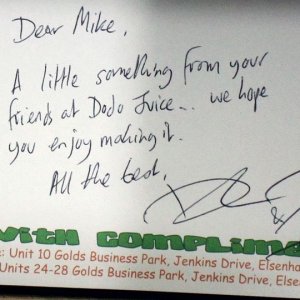 Dear Mike,
A little something from your
friends at Dodo Juice... we hope
you enjoy making it.
All the best,
&
with complime
e: Unit 10 Golds Business Park, Jenkins Drive, Elsenha
Units 24-28 Golds Business Park, Jenkins Drive, Else